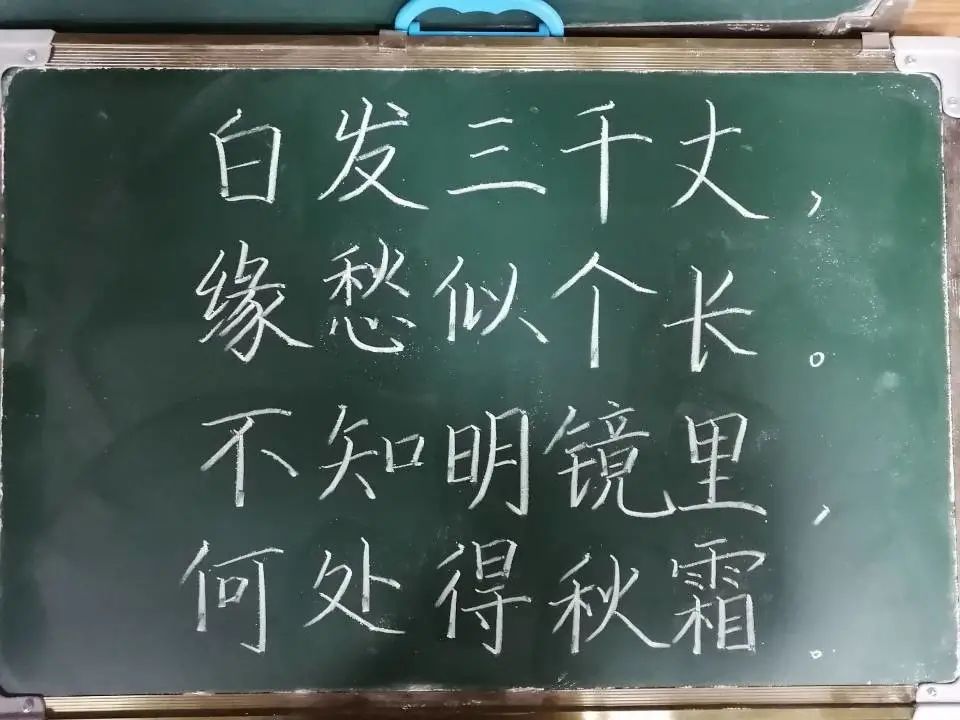 白发三千丈,
缘愁似个长。
不知明镜里,
何处得秋霜。